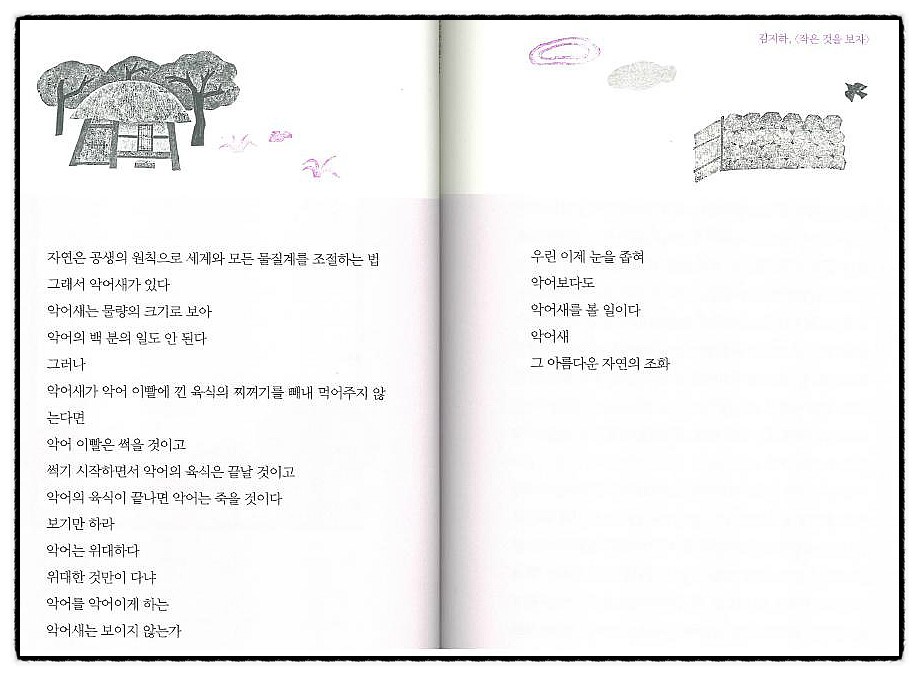 김지하, 〈작은 것을 보자〉
자연은 공생의 원칙으로 세계와 모든 물질계를 조절하는 법
그래서 악어새가 있다
악어새는 물량의 크기로 보아
악어의 백 분의 일도 안 된다
그러나
악어새가 악어 이빨에 낀 육식의 찌꺼기를 빼내 먹어주지 않
는다면
악어 이빨은 썩을 것이고
썩기 시작하면서 악어의 육식은 끝날 것이고
악어의 육식이 끝나면 악어는 죽을 것이다
보기만 하라
악어는 위대하다
위대한 것만이 다냐
악어를 악어이게 하는
악어새는 보이지 않는가
우린 이제 눈을 좁혀
악어보다도
악어새를 볼 일이다
악어새
그 아름다운 자연의 조화